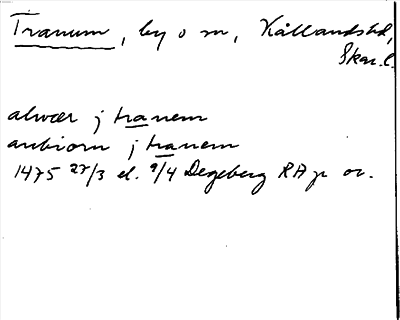 Tranum, by o sn, Kållandshd,
Skar. l.
alwær j tranem
anbiorn j tranem
1475 27/3 el. 9/4 Degeberg RAp or.